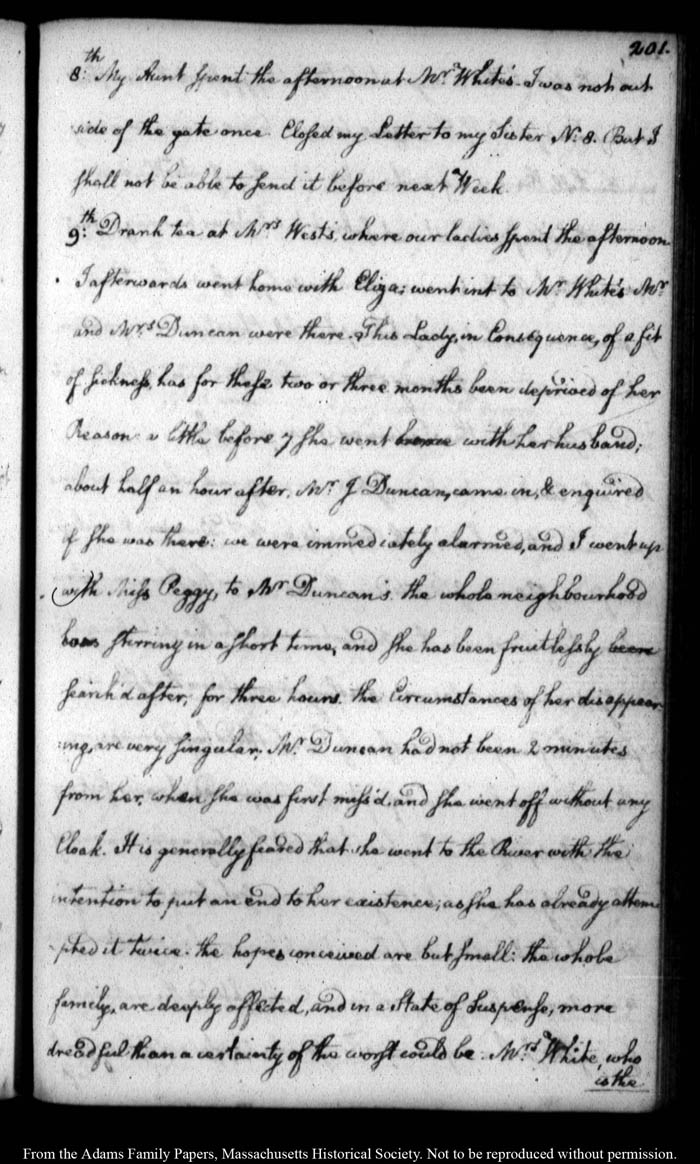 201.
8:th My Aunt spent the afternoon at Mr. White's. I was not out
side of the gate once. Closed my Letter to my Sister N: 8. But I
shall not be able to send it before next Week.
9:th Drank tea at Mrs West's, where our ladies spent the afternoon.
I afterwards went home with Eliza; went int to Mr. White's Mr.
and Mrs. Duncan were there. This Lady, in Consequence, of a fit
of sickness, has for these two or three months been deprived of her
Reason: a little before 7 she went home with her husband;
about half an hour after, Mr. J Duncan, came in, & enquired
if she was there: we were immediately alarmed, and I went up
with Miss Peggy, to Mr. Duncan's. the whole neighbourhood
was stirring in a short time, and she has been fruitlessly been
search'd after, for three hours. the Circumstances of her disappear
ing, are very singular; Mr. Duncan had not been 2 minutes
from her, when she was first miss'd, and she went off without any
Cloak. It is generally feared that she went to the River with the
intention to put an end to her existence; as she has already attem
pted it twice. the hopes conceived are but small: the whole
family, are deeply affected, and in a State of Suspense, more
dreadful than a certainty of the worst could be. Mrs. White, who
is the
From the Adams Family Papers, Massachusetts Historical Society. Not to be reproduced without permission.